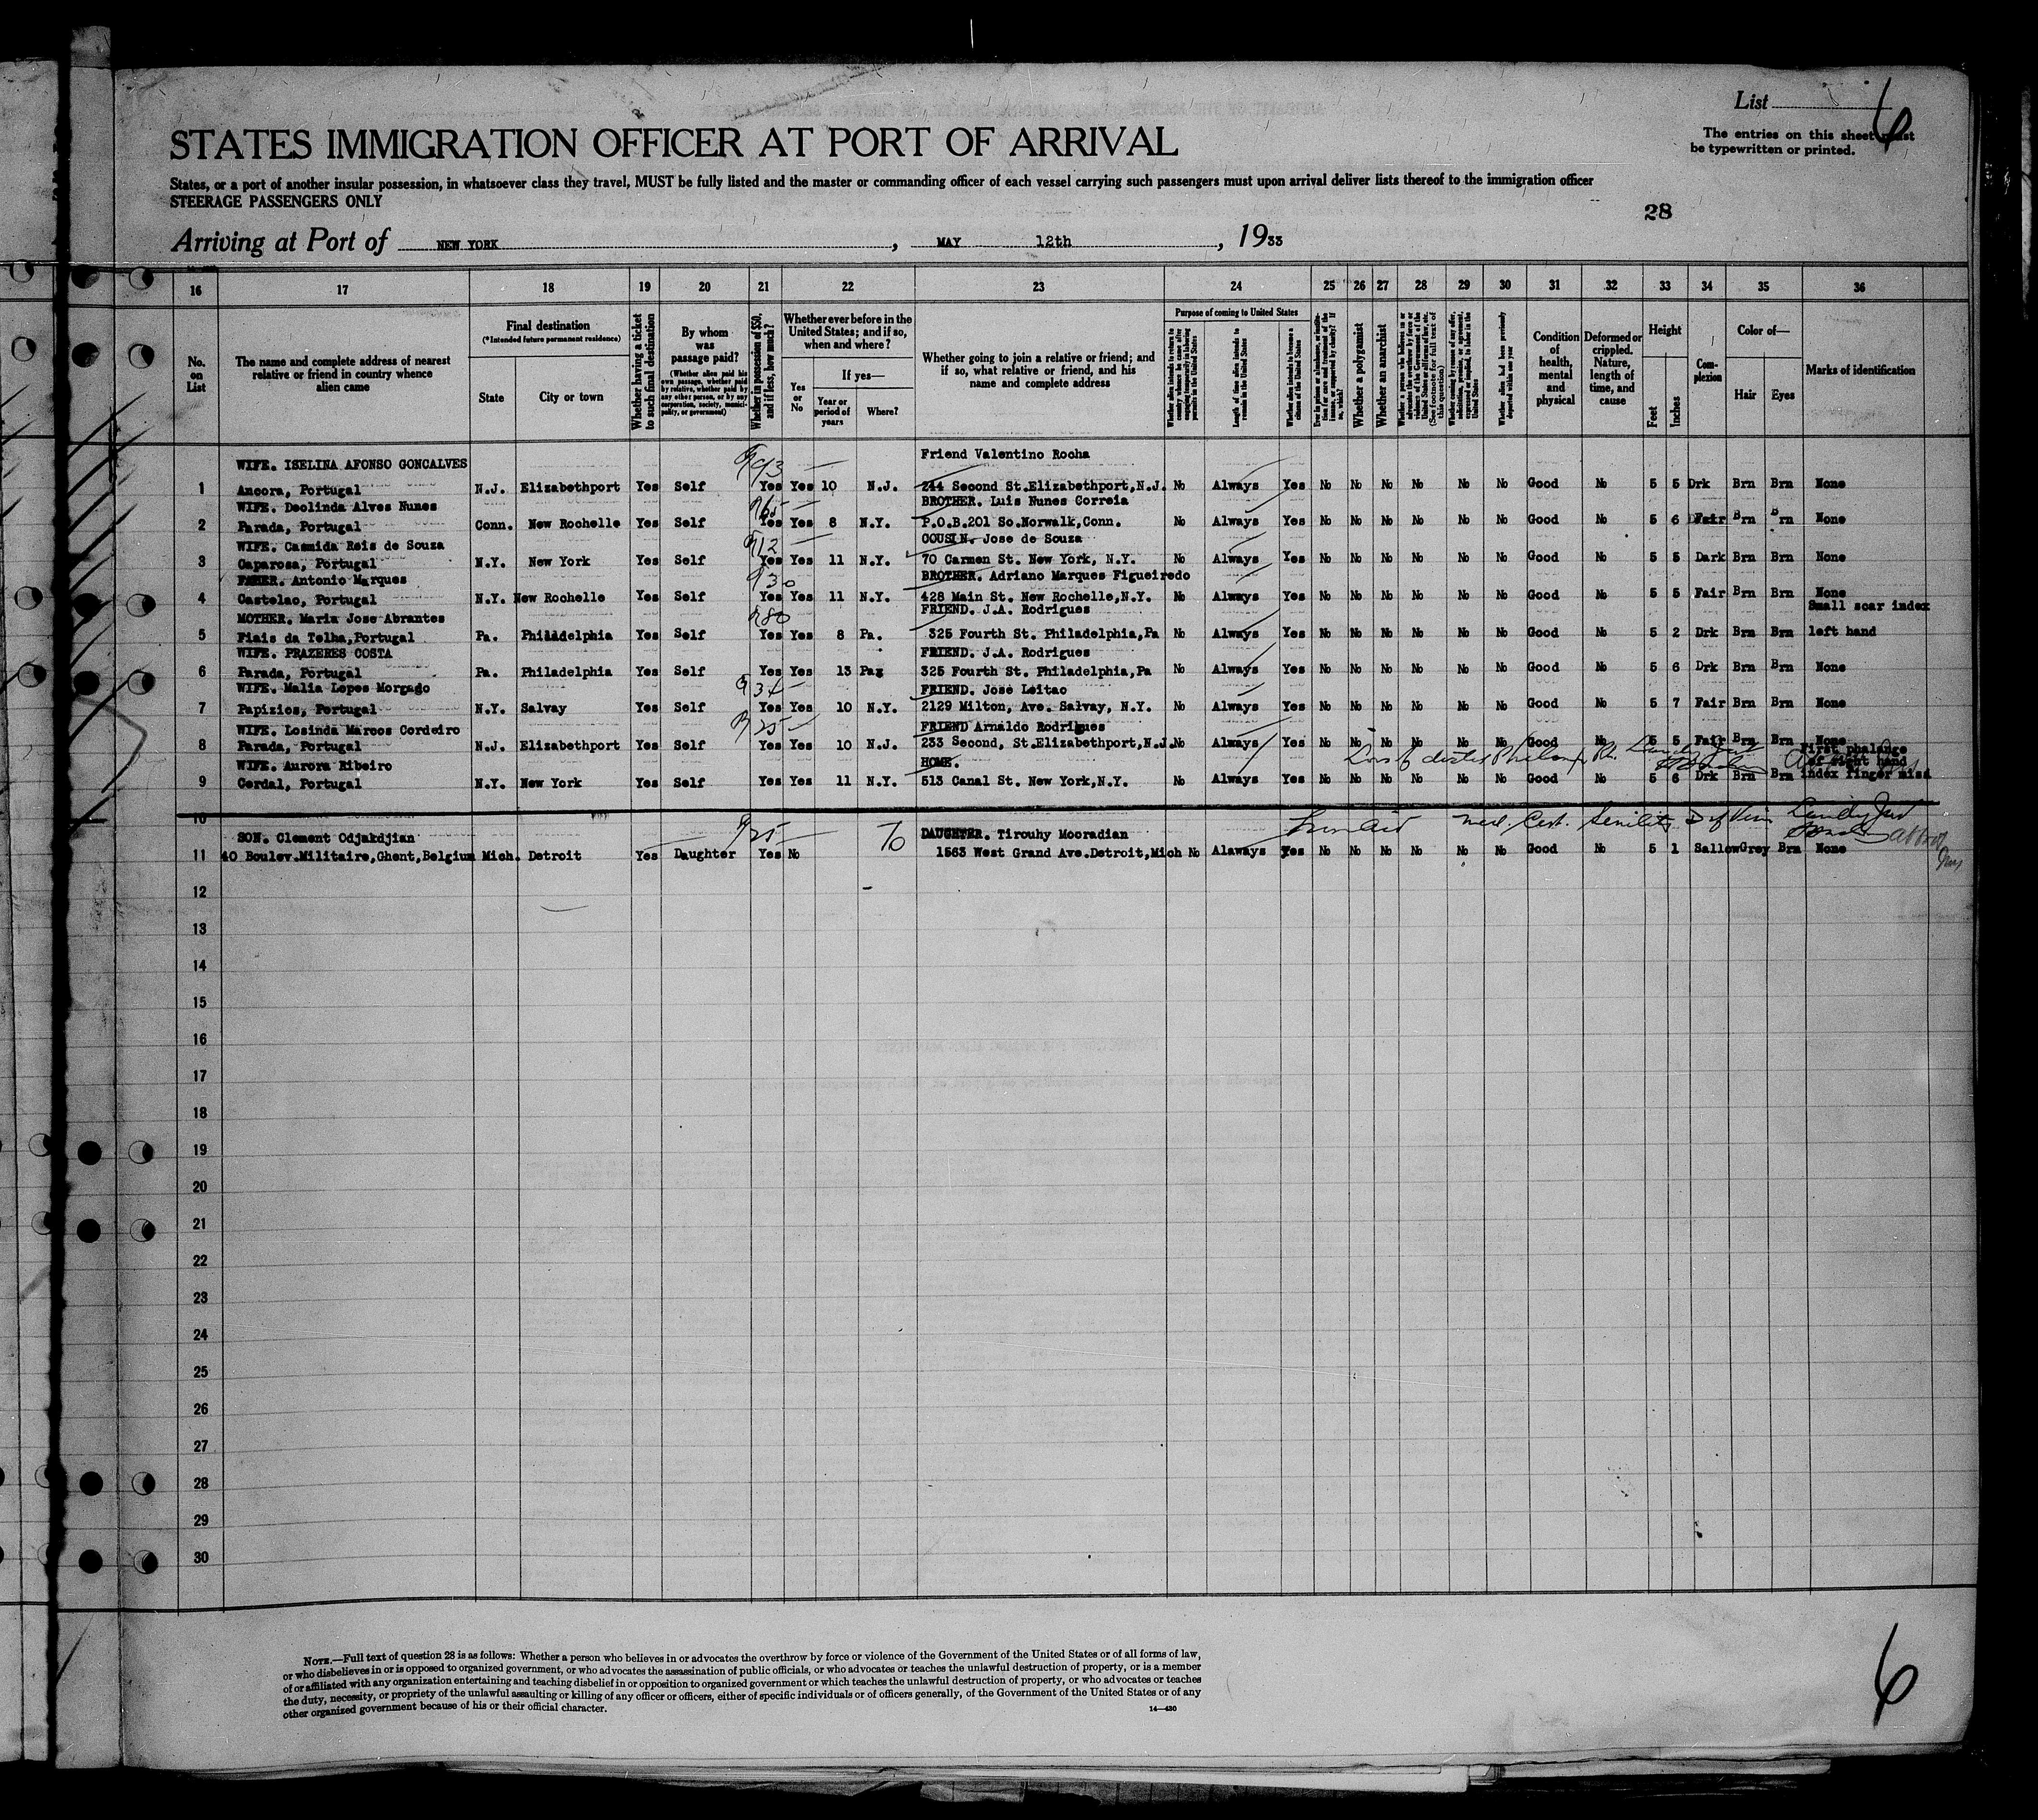 List 6
The entries on this sheet must
be typewritten or printed.
STATES IMMIGRATION OFFICER AT PORT OF ARRIVAL
States, or a port of another insular possession, in whatsoever class they travel, MUST be fully listed and the master or commanding officer of each vessel carrying such passengers must upon arrival deliver lists thereof to the immigration officer
STEERAGE PASSENGERS ONLY
28
Arriving at Port of NEW YORK, MAY 12th, 1933
16 17 18 19 20 21 22 23 24 25 26 27 28 29 30 31 32 33 34 35 36
No. on List
The name and complete address of nearest relative or friend in country whence alien came
Final destination
(*Intended future permanent residence)
State
City or town
Whether having a ticket to such final destination
By whom was passage paid?
(Whether alien paid his own passage, whether paid by relative, whether paid by any other person, or by any corporation, society, municipality, or government)
Whether in possession of $50, and if less, how much?
Whether ever before in the United States; and if so, when and where?
Yes or No
If yes—
Year or period of years
Where?
Whether going to join a relative or friend; and if so, what relative or friend, and his name and complete address
Purpose of coming to United States
Length of time alien intends to remain in the United States
Whether alien intends to become a citizen of the United States
Whether a polygamist
Whether an anarchist
Condition of health, mental and physical
Deformed or crippled. Nature, length of time, and cause
Height
Feet
Inches
Complexion
Color of—
Hair
Eyes
Marks of identification
WIFE. ISELINA AFONSO GONCALVES Friend Valentino Rocha
1 Ancora, Portugal N.J. Elizabethport Yes Self Yes Yes 10 N.J. 244 Second St.Elizabethport,N.J. No Always Yes No No No No No No Good No 5 5 Drk Brn Brn None
WIFE. Deolinda Alves Nunes BROTHER. Luis Nunes Correia
2 Parada, Portugal Conn. New Rochelle Yes Self Yes Yes 8 N.Y. P.O.B.201 So.Norwalk,Conn. No Always Yes No No No No No No Good No 5 6 Fair Brn Brn None
WIFE. Casmida Reis de Souza COUSIN. Jose de Souza
3 Caparosa, Portugal N.Y. New York Yes Self Yes Yes 11 N.Y. 70 Carmen St. New York, N.Y. No Always Yes No No No No No No Good No 5 5 Dark Brn Brn None
Antonio Marques BROTHER. Adriano Marques Figueiredo
4 Castelao, Portugal N.Y. New Rochelle Yes Self Yes Yes 11 N.Y. 428 Main St. New Rochelle,N.Y. No Always Yes No No No No No No Good No 5 5 Fair Brn Brn None
MOTHER. Maria Jose Abrantes FRIEND. J.A. Rodrigues Small scar index
5 Fiais da Telha,Portugal Pa. Philadelphia Yes Self Yes Yes 8 Pa. 325 Fourth St. Philadelphia,Pa No Always Yes No No No No No No Good No 5 2 Drk Brn Brn left hand
WIFE. PRAZERES COSTA FRIEND. J.A. Rodrigues
6 Parada, Portugal Pa. Philadelphia Yes Self Yes Yes 13 Pa 325 Fourth St. Philadelphia,Pa No Always Yes No No No No No No Good No 5 6 Drk Brn Brn None
WIFE. Malia Lopes Morgado FRIEND. Jose Leitao
7 Papizios, Portugal N.Y. Salvay Yes Self Yes Yes 10 N.Y. 2129 Milton, Ave. Salvay, N.Y. No Always Yes No No No No No No Good No 5 7 Fair Brn Brn None
WIFE. Losinda Marcos Cordeiro FRIEND Arnaldo Rodrigues
8 Parada, Portugal N.J. Elizabethport Yes Self Yes Yes 10 N.J. 233 Second, St.Elizabethport,N.J. No Always Yes No No No No No No Good No 5 5 Fair Brn Brn None
WIFE. Aurora Ribeiro HOME. First phalange of right hand
9 Cerdal, Portugal N.Y. New York Yes Self Yes Yes 11 N.Y. 513 Canal St. New York,N.Y. No Always Yes No No No No No No Good No 5 6 Drk Brn Brn index finger miss
10
SON. Clement Odjakdjian 70 DAUGHTER. Tirouhy Mooradian Med. Cert. Senility Def Vis
11 40 Boulev.Militaire,Ghent,Belgium Mich. Detroit Yes Daughter Yes No 1563 West Grand Ave.Detroit,Mich No Alaways Yes No No No No No No Good No 5 1 Sallow Grey Brn None
12
13
14
15
16
17
18
19
20
21
22
23
24
25
26
27
28
29
30
NOTE.—Full text of question 28 is as follows: Whether a person who believes in or advocates the overthrow by force or violence of the Government of the United States or of all forms of law,
or who disbelieves in or is opposed to organized government, or who advocates the assassination of public officials, or who advocates or teaches the unlawful destruction of property, or is a member
of or affiliated with any organization entertaining and teaching disbelief in or opposition to organized government or which teaches the unlawful destruction of property, or who advocates or teaches
the duty, necessity, or propriety of the unlawful assaulting or killing of any officer or officers, either of specific individuals or of officers generally, of the Government of the United States or of any
other organized government because of his or their official character.
14—430
6